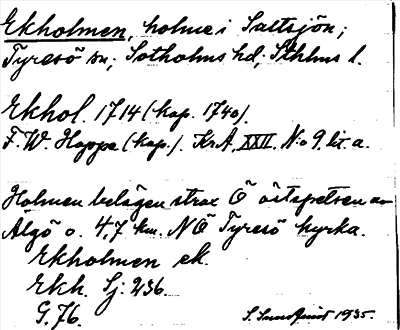 Ekholmen, holme i Saltsjön;
Tyresö sn; Sotholms hd; Sthlms l.
Ekhol. 1714 (kop. 1740).
F. W. Hoppe (kop.). Kr A, XXII. N:o 9. lit. a.
Holmen belägen strax Ö östspetsen av
Älgö o. 4,7 km. NÖ Tyresö kyrka.
Ekholmen ek.
Ekh. Sj: 236.
G. 76.
S. Sundquist 1935.